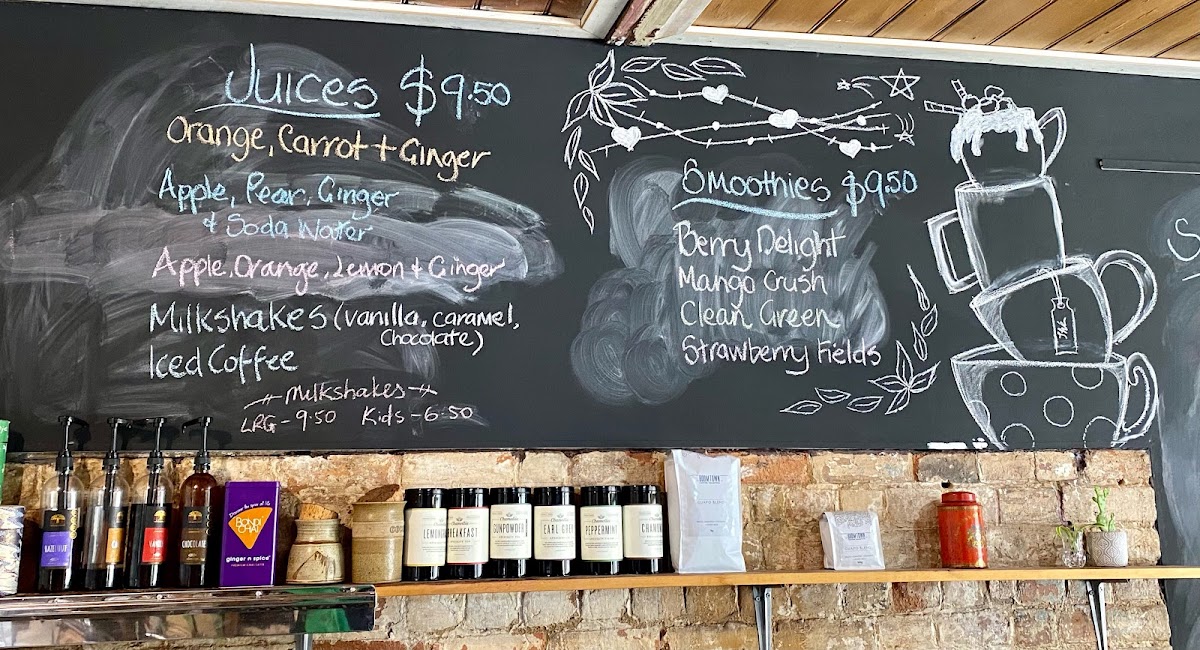 Juices $9.50
Orange, Carrot + Ginger
Apple, Pear, Ginger
& Soda Water
Apple, Orange, Lemon & Ginger
Milkshakes (vanilla, caramel,
Chocolate)
Iced Coffee
Milkshakes
LRG - 9.50 Kids - 6.50
Smoothies $9.50
Berry Delight
Mango Crush
Clean Green
Strawberry Fields
S
Tea
HAZELNUT
VANILLA
CHOCOLATE
BONDI
CHAI
ginger n spice
BREAKFAST
GUNPOWDER
EARL GREY
PEPPERMINT